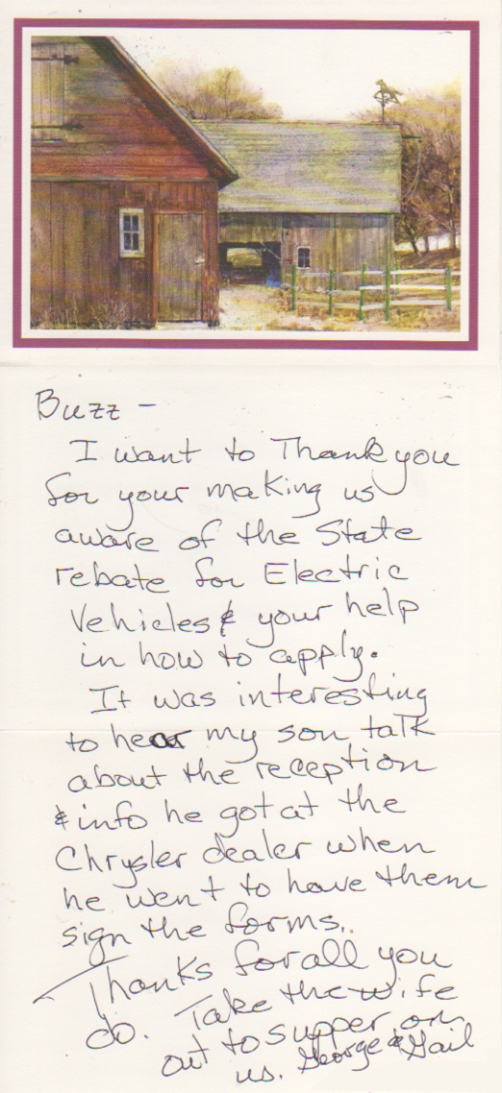 Buzz -
I want to Thank you
for your making us
aware of the State
rebate for Electric
Vehicles & your help
in how to apply.
It was interesting
to hear my son talk
about the reception
& info he got at the
Chrysler dealer when
he went to have them
sign the forms.
Thanks for all you
do. Take the wife
out to supper on
us. George & Gail